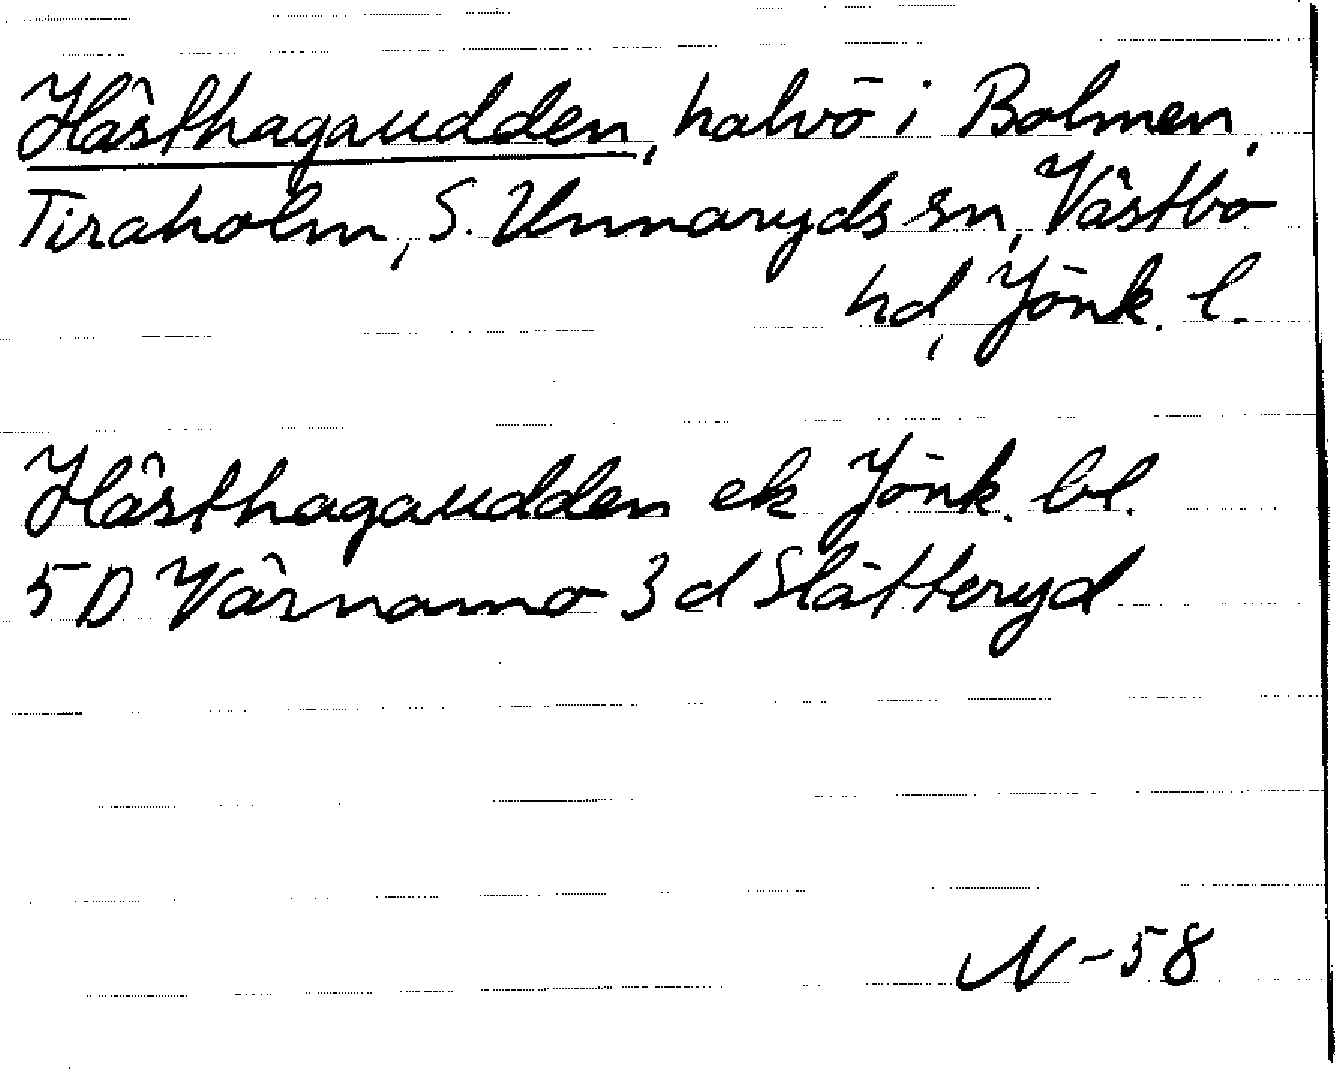 Hästhagaudden, halvö i Bolmen,
Tiraholm, S. Unnaryds sn, Västbo
hd, Jönk. l.
Hästhagaudden ek Jönk. bl.
5D Värnamo 3 d Slätteryd
N-58